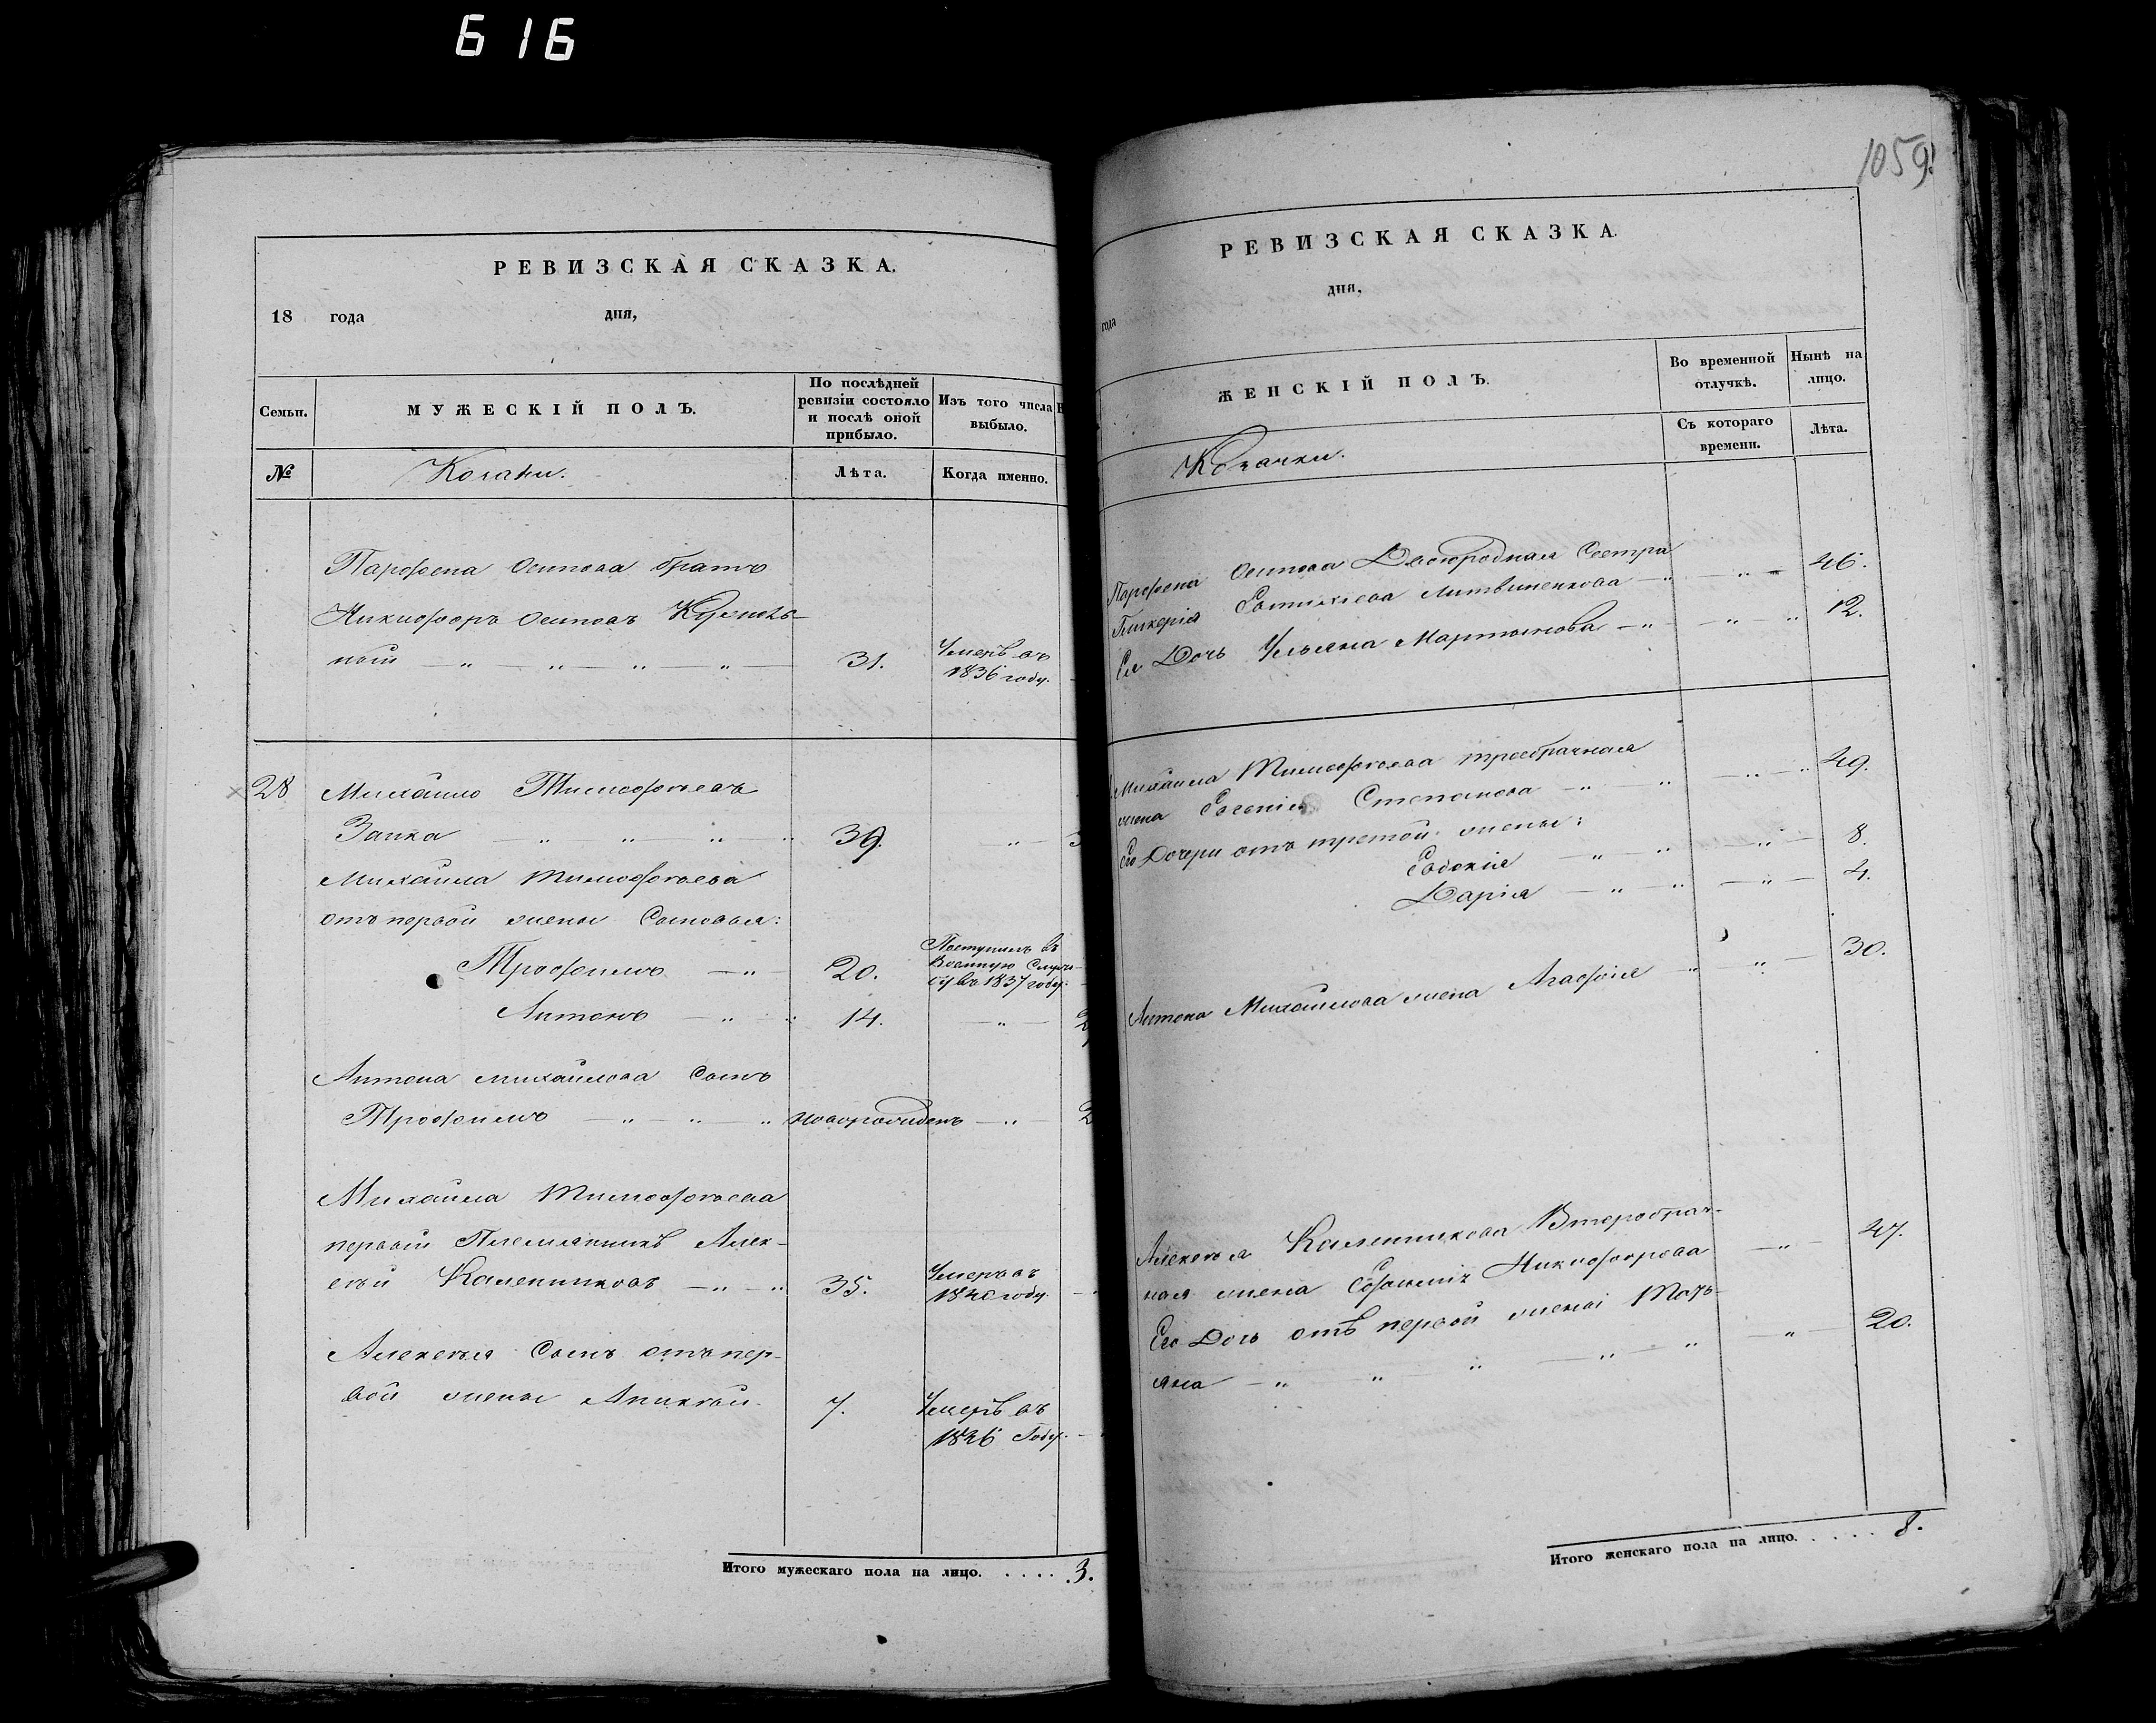 616
РЕВИЗСКАЯ СКАЗКА.
18 года дня,
Семьи.
МУЖЕСКІЙ ПОЛЪ.
По послѣдней ревизіи состояло и послѣ оной прибыло.
Изъ того числа выбыло.
№
Козаки.
Лѣта.
Когда именно.
Парфена Осипова братъ
Никифоръ Осиповъ
ный — „ — „ — „ — „ — 31. Умеръ въ
1836 году.
28 Михайло Тимофѣевъ
Заика — „ — „ — „ — „ 39. „ —
Михаила Тимофѣева
отъ первой жены Сыновья:
Трофимъ — „ — 20. Поступилъ въ
Военную Служ-
бу въ 1837 году.
Антонъ — „ — „ 14. — „ —
Антона Михайлова Сынъ
Трофимъ — „ — „ — „ новорожденъ — „ — 2
Михаила Тимофѣева
первый Племянникъ Алек-
сѣй Калениковъ — „ — „ 35. Умеръ въ
1840 году.
Алексѣя Сынъ отъ пер-
вой жены Аникѣй. 7. Умеръ въ
1846 Году.
Итого мужескаго пола на лицо. . . . . 3.
1059.
РЕВИЗСКАЯ СКАЗКА.
года дня,
ЖЕНСКІЙ ПОЛЪ.
Во временной отлучкѣ.
Нынѣ на лицо.
Козачки.
Съ котораго времени.
Лѣта.
Парфена Осипова Двоюродная Сестра
Гликерія Литвиненкова — „ — „ — 46.
Ея Дочь Ульяна Мартынова — „ — „ — „ 12.
Михаила Тимофѣева троебрачная
жена Евгенія Степанова — „ — „ — „ — „ 49.
Его Дочери отъ третой жены:
Евдокія — „ — „ — „ — 8.
Дарія — „ — „ — „ — 4.
Антона Михайлова жена Агафія — „ „ — 30.
Алексѣя Каленикова Второбрач-
ная жена Никифорова — „ — 47.
Его Дочь отъ первой жены Тать-
яна — „ — „ — „ — „ — „ — „ — 20.
Итого женскаго пола на лицо. . . . . 8.